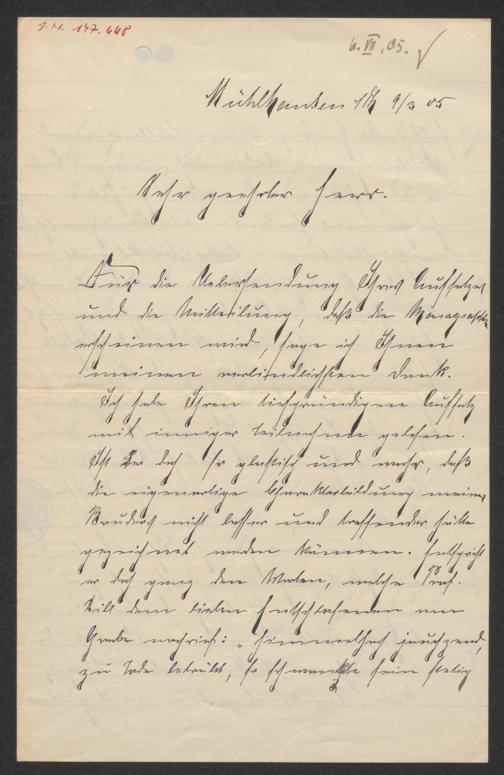 I.N. 147.448
6.VII.05.
Mühlhausen 9/3 05
Sehr geehrter Herr.
Für die Uebersendung Ihres Aufsatzes
und die Mitteilung, daß die Monographie
erscheinen wird, sage ich Ihnen
meinen verbindlichsten Dank.
Ich habe Ihren tiefgründigen Aufsatz
mit inniger Teilnahme gelesen.
Ist er doch so plastisch und wahr, daß
die eigenartige Charakterbildung meines
Bruders nicht besser und treffender hätte
gezeichnet werden können. Entspricht
er doch ganz den Worten, welche Prof.
dem lieben Entschlafenen am
Grabe nachrief: „Himmelhoch jauchzend,
zu Tode betrübt, so schwankte sein stetig